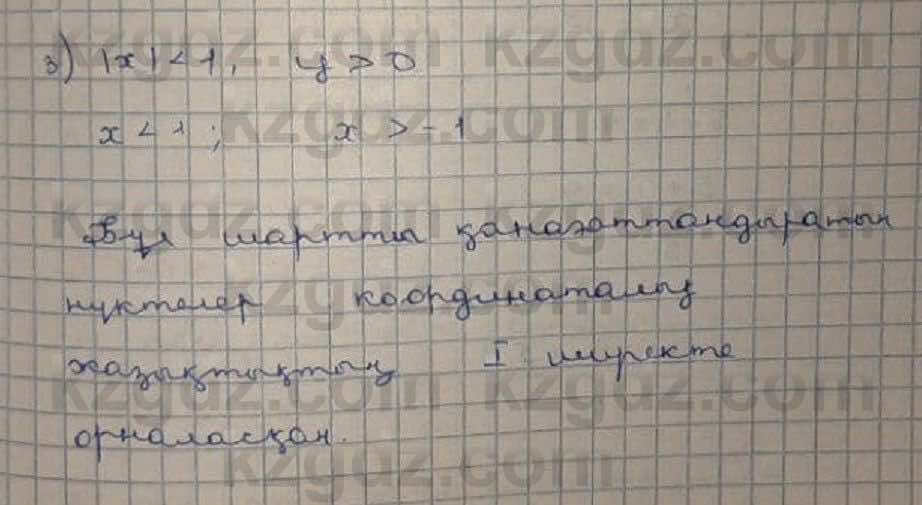 3) |x| < 1, y > 0
x < 1; x > -1
Бұл шартты қанағаттандыратын
нүктелер координаталық
жазықтықтың I ширекте
орналасқан.
kzgdz.com kzgdz.com
kzgdz.com
kzgdz.com kzgdz.com
kzgdz.com
kzgdz.com kzgdz.com
kzgdz.com